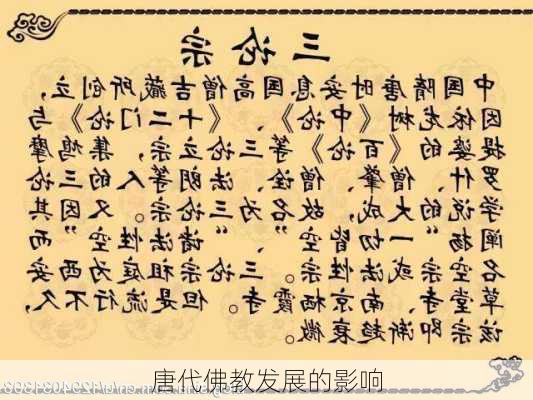 三论宗
中国隋唐时安息国高僧吉藏所创立，
因依龙树《中论》、《十二门论》与
提婆的《百论》等三论立宗，集鸠摩
罗什、僧肇、僧诠、法朗等人的三论
学说的大成，故名为三论宗。又因其
阐扬“一切皆空”、“诸法性空”而
名空宗或法性宗。三论宗祖庭为西安
草堂寺、南京栖霞寺。但是流行不久，
该宗即渐趋衰微。
唐代佛教发展的影响